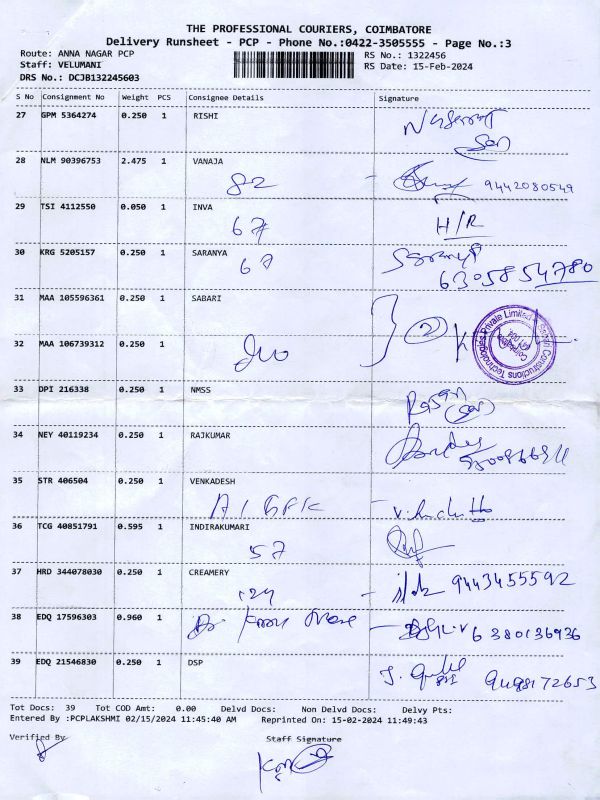 THE PROFESSIONAL COURIERS, COIMBATORE
Delivery Runsheet - PCP - Phone No.:0422-3505555 - Page No.:3
Route: ANNA NAGAR PCP RS No.: 1322456
Staff: VELUMANI RS Date: 15-Feb-2024
DRS No.: DCJB132245603
S No Consignment No Weight PCS Consignee Details Signature
27 GPM 5364274 0.250 1 RISHI
28 NLM 90396753 2.475 1 VANAJA
82 9442080549
29 TSI 4112550 0.050 1 INVA
67 H/R
30 KRG 5205157 0.250 1 SARANYA
67 6305854780
31 MAA 105596361 0.250 1 SABARI
2
32 MAA 106739312 0.250 1
33 DPI 216338 0.250 1 NMSS
34 NEY 40119234 0.250 1 RAJKUMAR
35 STR 406504 0.250 1 VENKADESH
36 TCG 40851791 0.595 1 INDIRAKUMARI
57
37 HRD 344078030 0.250 1 CREAMERY
9443455592
38 EDQ 17596303 0.960 1
6380136936
39 EDQ 21546830 0.250 1 DSP
Tot Docs: 39 Tot COD Amt: 0.00 Delvd Docs: Non Delvd Docs: Delvy Pts:
Entered By :PCPLAKSHMI 02/15/2024 11:45:40 AM Reprinted On: 15-02-2024 11:49:43
Verified By Staff Signature